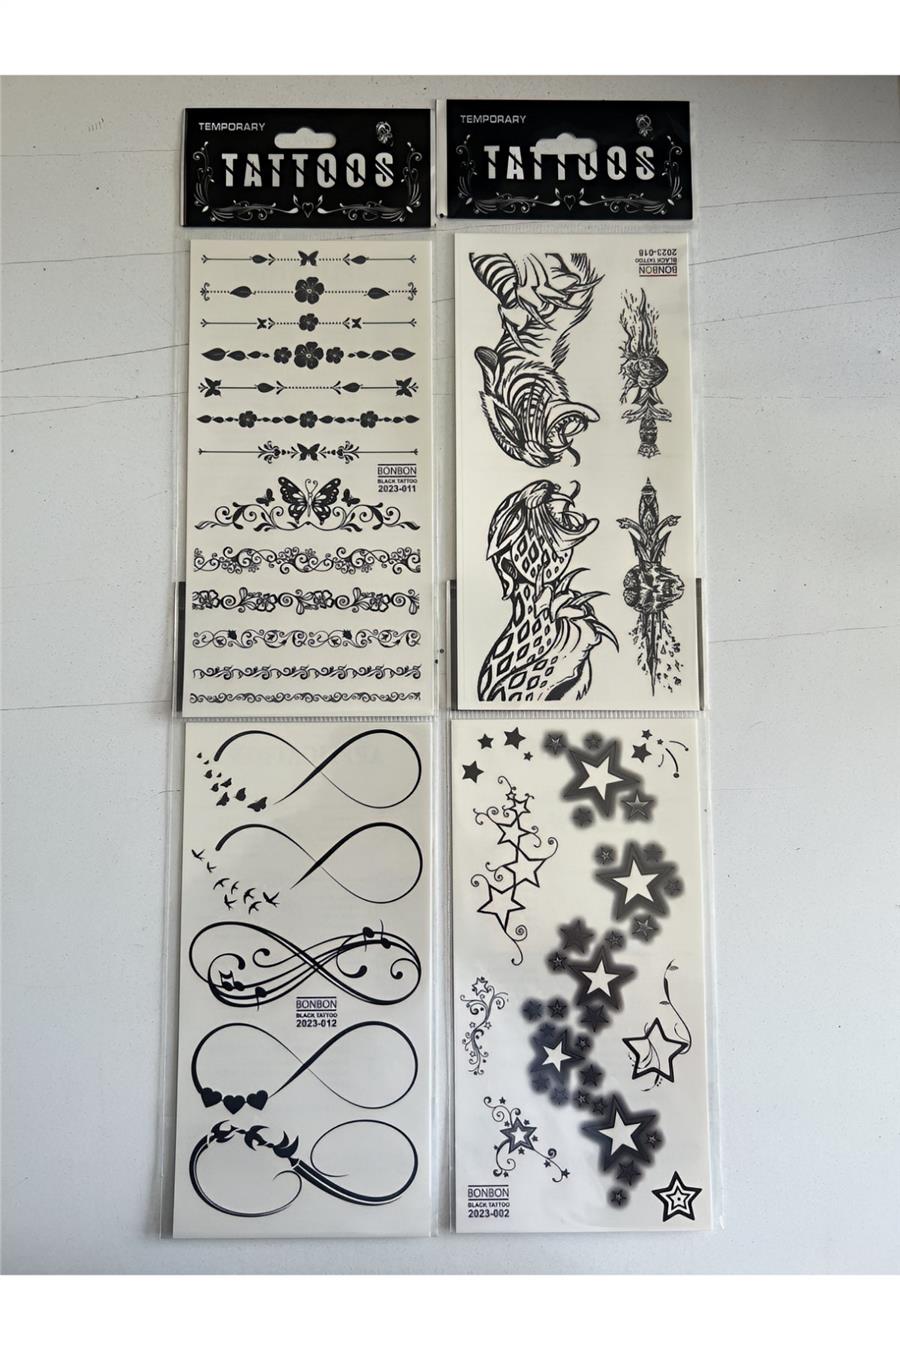 TEMPORARY
TATTOOS
TEMPORARY
TATTOOS
BONBON
BLACK TATTOO
2023-011
BONBON
BLACK TATTOO
2023-018
BONBON
BLACK TATTOO
2023-012
BONBON
BLACK TATTOO
2023-002